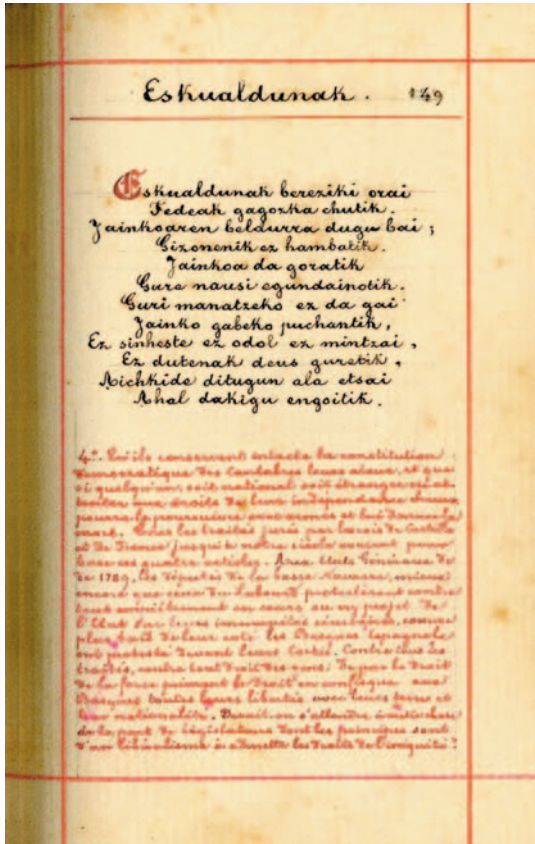 Eskualdunak. 149
Eskualdunak bereziki orai
Fedeak gagozka chutik.
Jainkoaren beldurra dugu bai ;
Gizonenik ez hambatik.
Jainkoa da goratik
Gure nausi egundainotik.
Guri manatzeko ez da gai
Jainko gabeko puchantik,
Ez sinheste ez odol ez mintzai,
Ez dutenak deus guretik,
Aichkide ditugun ala etsai
Ahal dakigu engoitik.
4.º Qu'ils conservent intacte la constitution
démocratique des Cantabres leurs aïeux, et que
si quelqu'un, soit national soit étranger
aux droits de leur indépendance chacun
pourra le poursuivre
mort. Tous les traités jurés par les rois de Castille
et de France jusqu'à notre siècle
ces quatre articles. Aux Etats Généraux de
de 1789, les députés de la basse Navarre, mieux
encore que ceux du Labourd protestèrent contre
un projet de
l'Etat sur leurs immunités
plus tard de leur coté les Basques Espagnols
ont protesté devant leurs Cortès. Contre tous les
traités, contre tout droit des gens, de par le droit
de la force primant le droit on confisque aux
Basques toutes leurs libertés avec leurs terres et
leur nationalité. Devait-on s'attendre
de la part de législateurs dont les principes sont
d'un libéralisme à admettre les droits de l'iniquité?